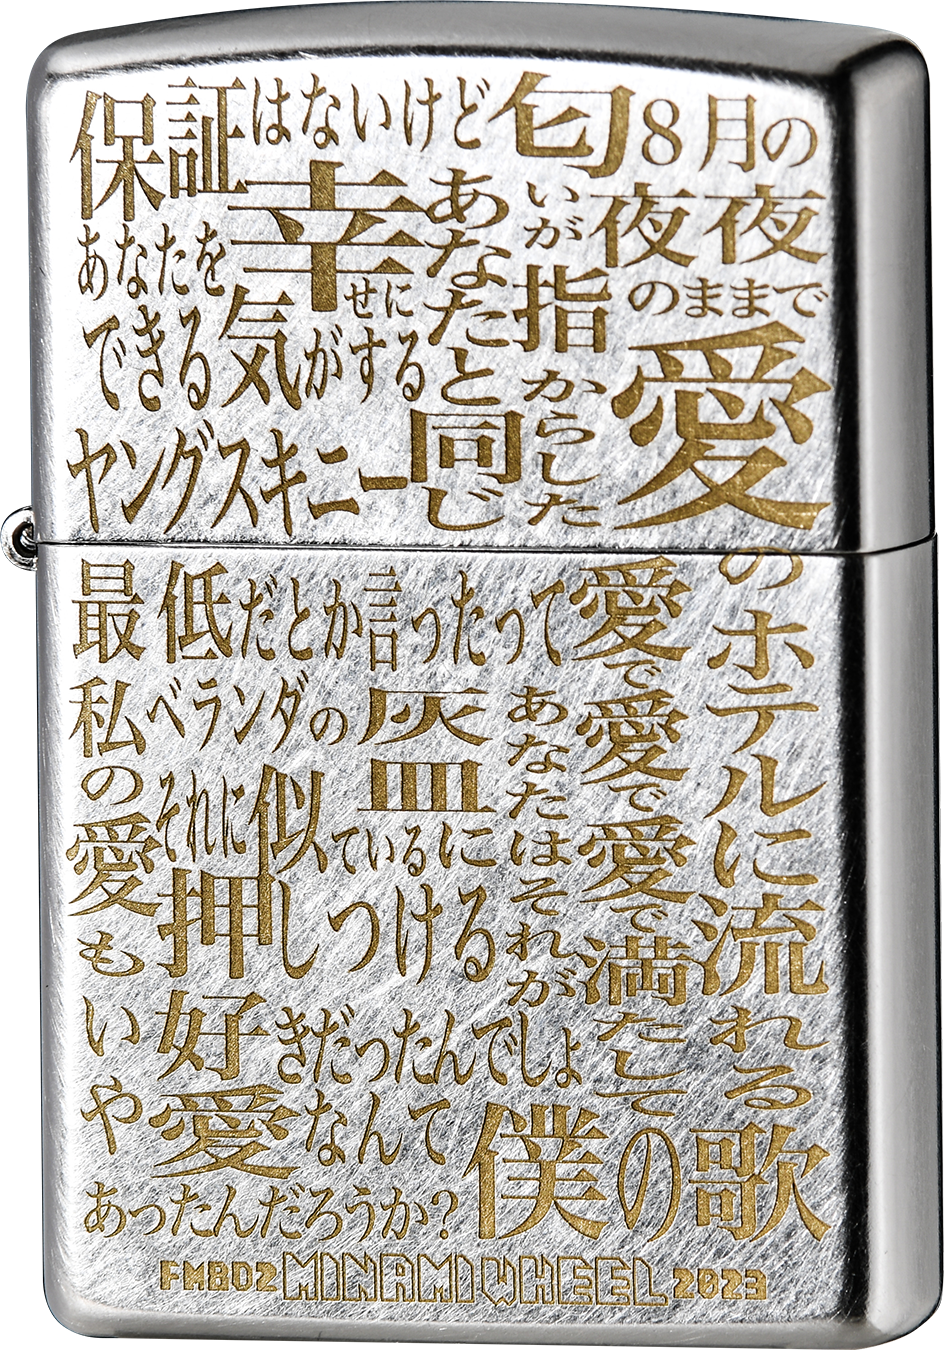 保証はないけど
あなたを幸せに
できる気がする
ヤングスキニー
あなたと同じ
匂いが指からした
8月の
夜夜
のままで
愛のホテルに流れる
僕の歌
最低だとか言ったって
私の愛もいや
ベランダの灰皿
それに似ているに
押しつける
好きだったんでしょ
愛なんて
あったんだろうか?
あなたはそれが
愛で愛で愛で満たして
FM802 MINAMI WHEEL 2023